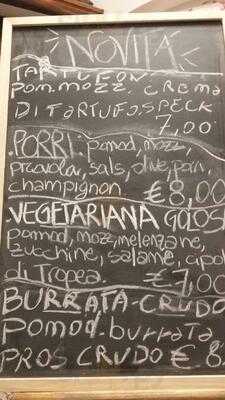 NOVITA
TARTUFON
Pom.mozz. crema
DI TARTUFO.SPECK
7,00
.PORRI: pomod, mozz,
provola, sals, olive, parm,
champignon. €8,00
.VEGETARIANA GOLOS
pomod, mozz, melenzane,
zucchine, salame, cipol
di Tropea. €7,00
BURRATA-CRUDO
Pomod. burrata
PROS CRUDO € 8.